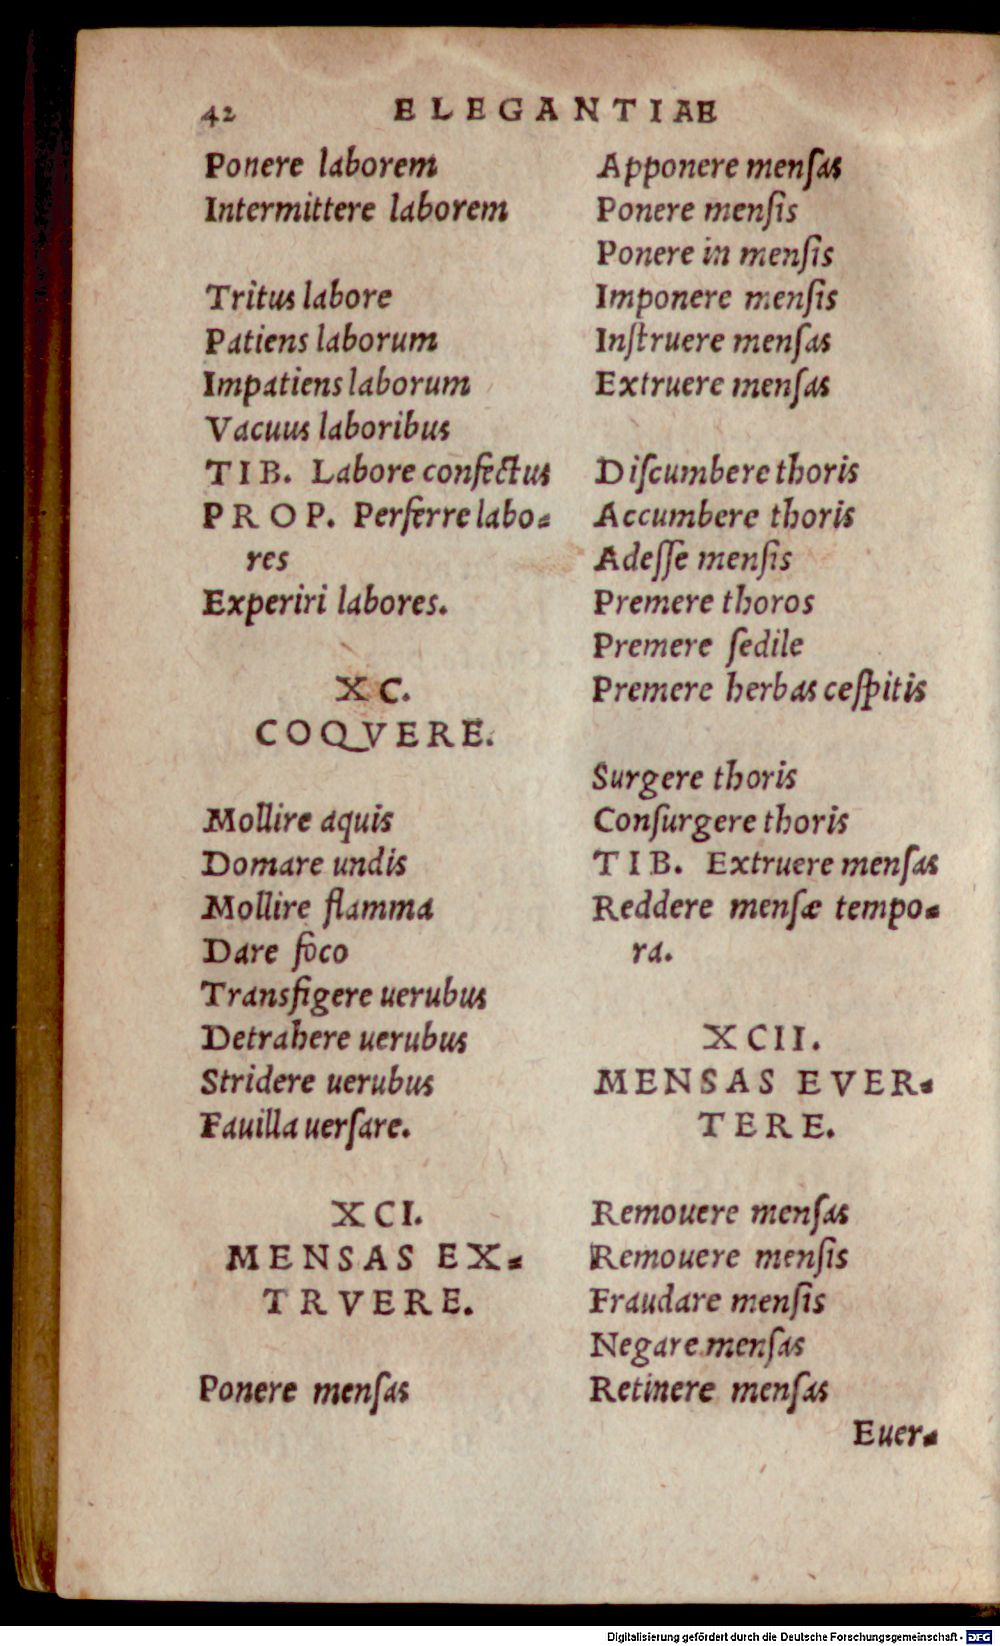 42 ELEGANTIAE
Ponere laborem
Intermittere laborem
Tritus labore
Patiens laborum
Impatiens laborum
Vacuus laboribus
TIB. Labore confectus
PROP. Perferre labo=
res
Experiri labores.
XC.
COQVERE.
Mollire aquis
Domare undis
Mollire flamma
Dare foco
Transfigere uerubus
Detrahere uerubus
Stridere uerubus
Fauilla uerſare.
XCI.
MENSAS EX=
TRVERE.
Ponere menſas
Apponere menſas
Ponere menſis
Ponere in menſis
Imponere menſis
Inſtruere menſas
Extruere menſas
Diſcumbere thoris
Accumbere thoris
Adeſſe menſis
Premere thoros
Premere ſedile
Premere herbas ceſpitis
Surgere thoris
Conſurgere thoris
TIB. Extruere menſas
Reddere menſæ tempo=
ra.
XCII.
MENSAS EVER=
TERE.
Remouere menſas
Remouere menſis
Fraudare menſis
Negare menſas
Retinere menſas
Euer=
Digitalisierung gefördert durch die Deutsche Forschungsgemeinschaft - DFG